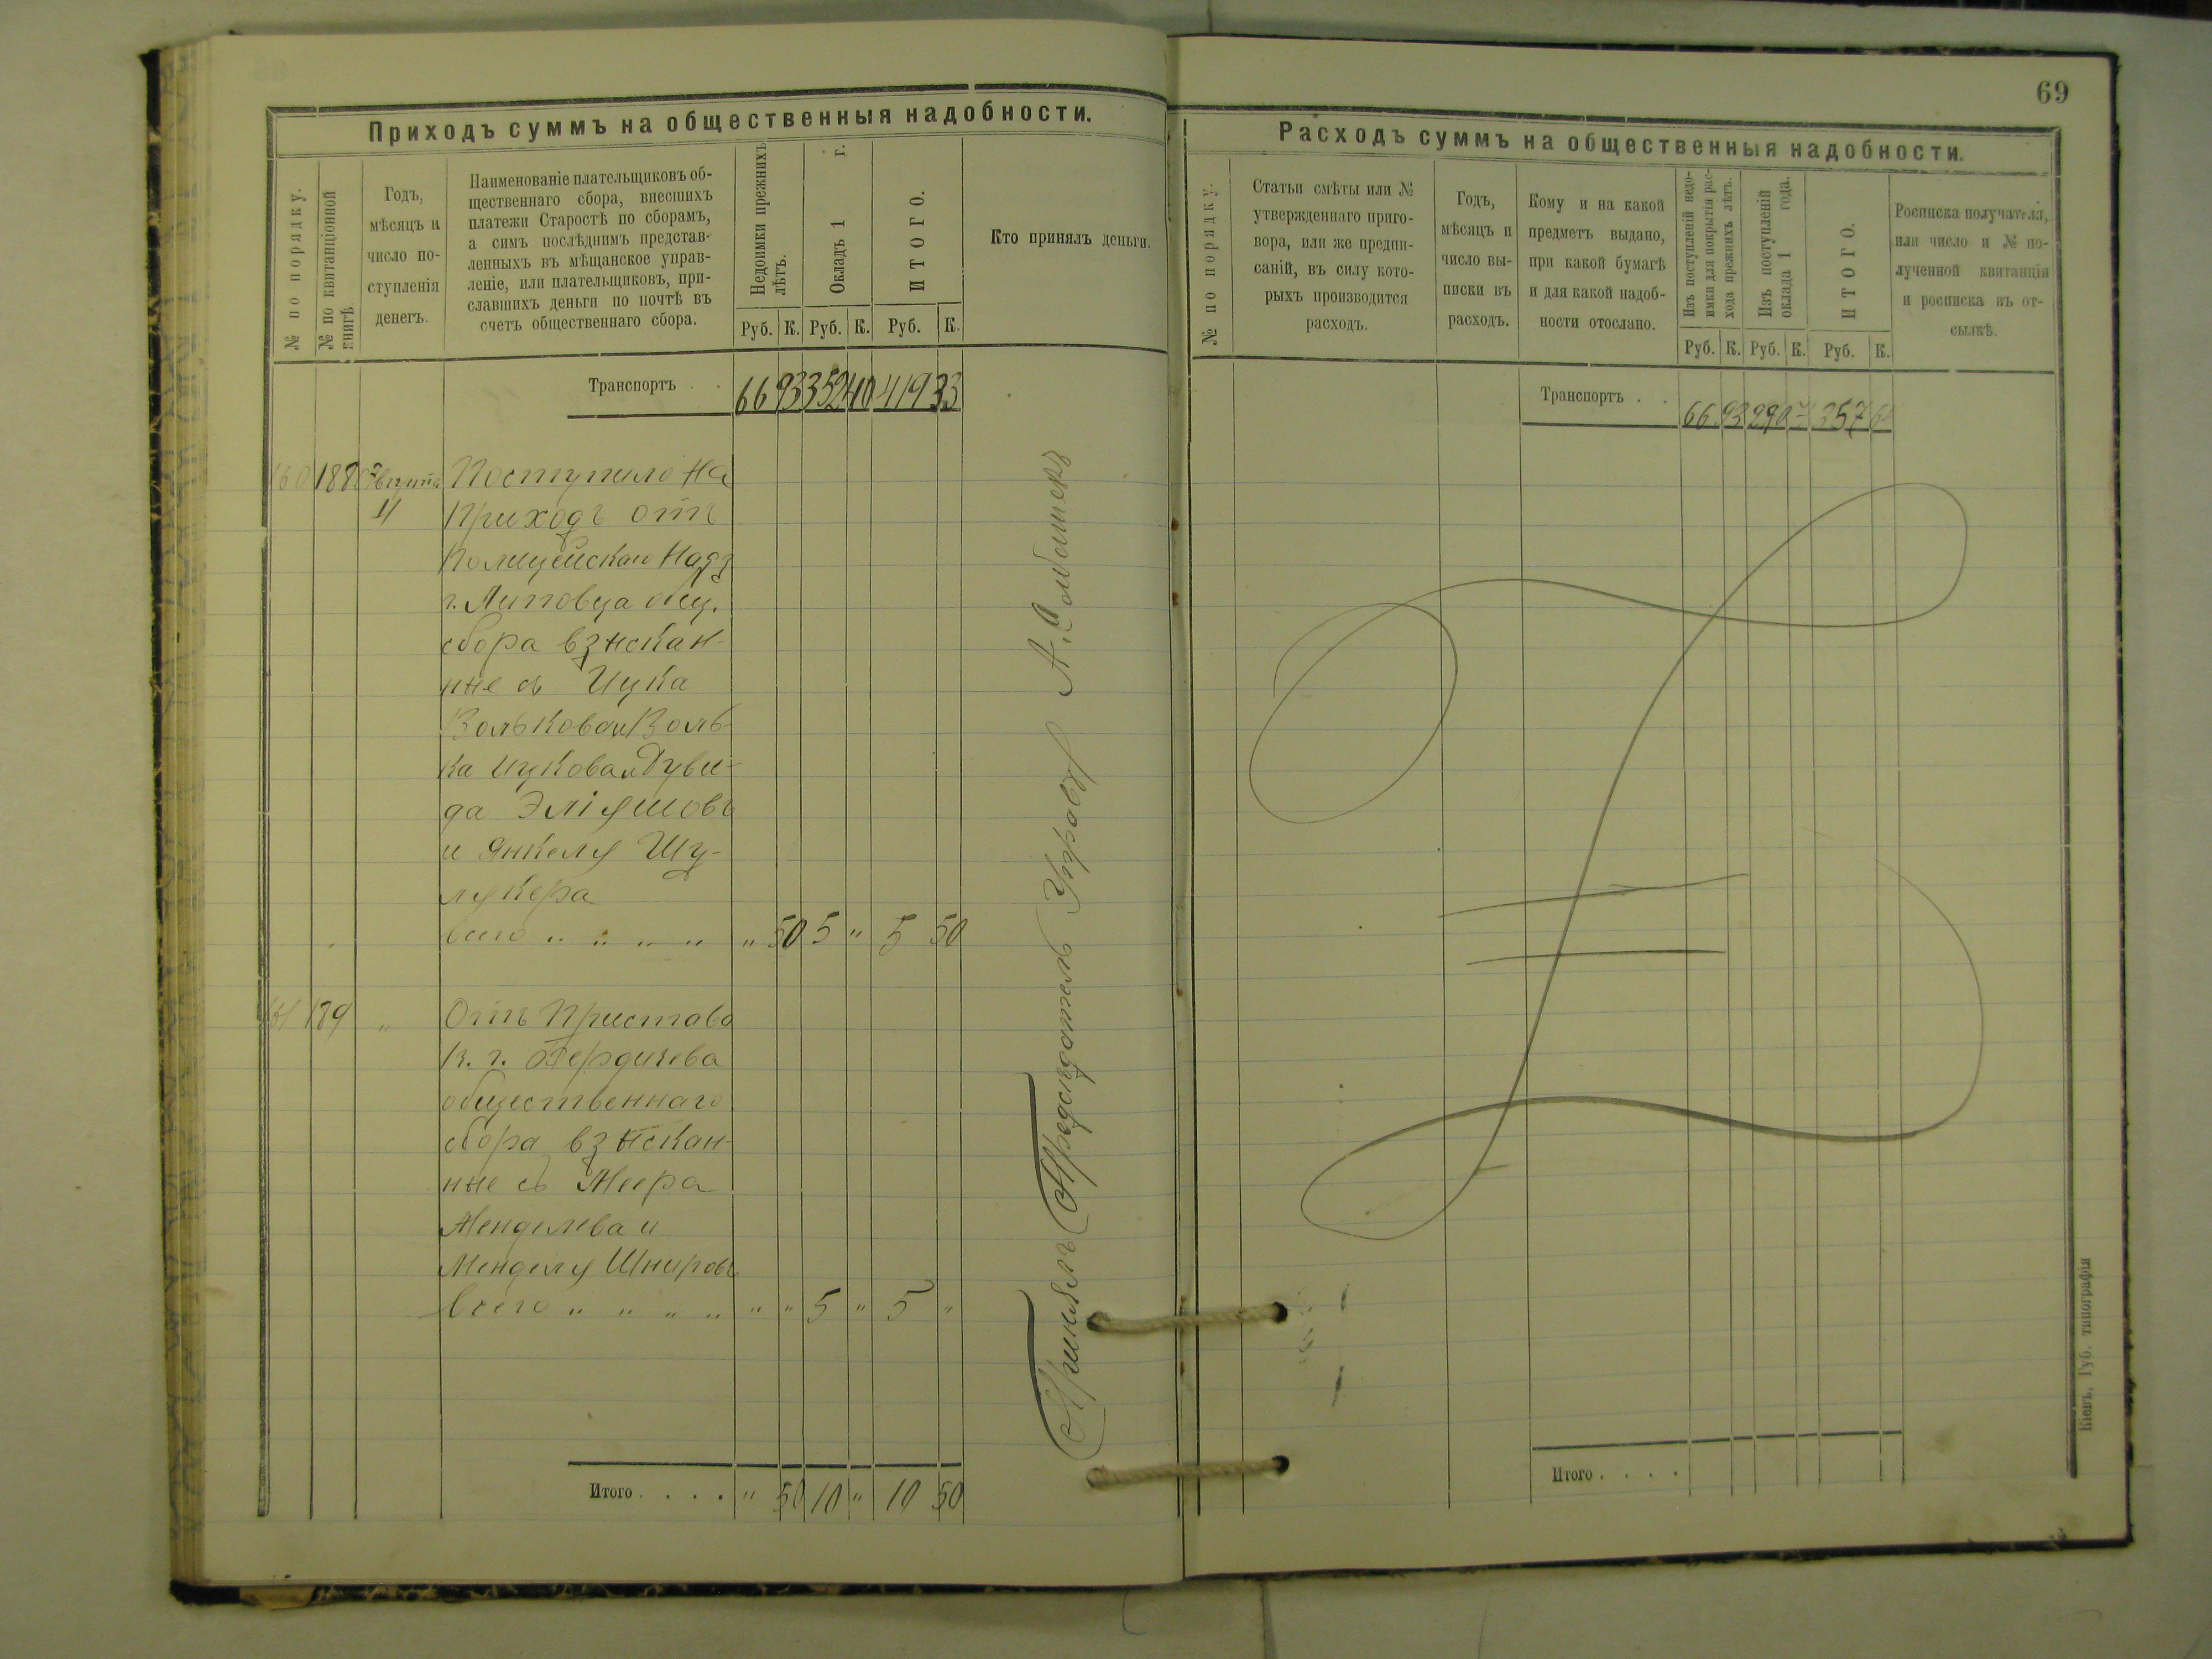 69
Приходъ суммъ на общественныя надобности.
№ по порядку.
№ по квитанціонной
книгѣ.
Годъ,
мѣсяцъ и
число по-
ступленія
денегъ.
Наименованіе плательщиковъ об-
щественнаго сбора, внесшихъ
платежи Старостѣ по сборамъ,
а симъ послѣднимъ представ-
ленныхъ въ мѣщанское управ-
леніе, или плательщиковъ, при-
славшихъ деньги по почтѣ въ
счетъ общественнаго сбора.
Недоимки прежнихъ
лѣтъ.
Окладъ 1 г.
ИТОГО.
Кто принялъ деньги.
Руб. К. Руб. К. Руб. К.
Транспортъ . . 66 93 352 40 419 33
160 188
11
Поступило на
приходъ отъ
Полицейскаго Надз
г. Липовца общ.
сбора взыскан-
ные съ Ицка
Волькова и Воль-
ка Ицкова и Дуви-
да Эліяшовъ
и Янкеля Шу-
лякера
всего „ „ „ „ „ 50 5 „ 5 50
161 189 „
Отъ Пристава
г. Бердичева
общественнаго
сбора взыскан-
ные съ Меера
Менделева и
Менделя Шнировъ
всего „ „ „ „ „ „ 5 „ 5 „
Итого . . . . „ 50 10 „ 10 50
Принялъ Предсѣдатель Управы А.
Расходъ суммъ на общественныя надобности.
№ по порядку.
Статьи смѣты или №
утвержденнаго приго-
вора, или же предпи-
саній, въ силу кото-
рыхъ производится
расходъ.
Годъ,
мѣсяцъ и
число вы-
писки въ
расходъ.
Кому и на какой
предметъ выдано,
при какой бумагѣ
и для какой надоб-
ности отослано.
Изъ поступленій недо-
имки для покрытія рас-
хода прежнихъ лѣтъ.
Изъ поступленій
оклада 1 года.
ИТОГО.
Росписка получателя,
или число и № по-
лученной квитанціи
и росписка въ от-
сылкѣ.
Руб. К. Руб. К. Руб. К.
Транспортъ . . 66 93 290 357
Итого . . . .
Кіевъ, Губ. типографія